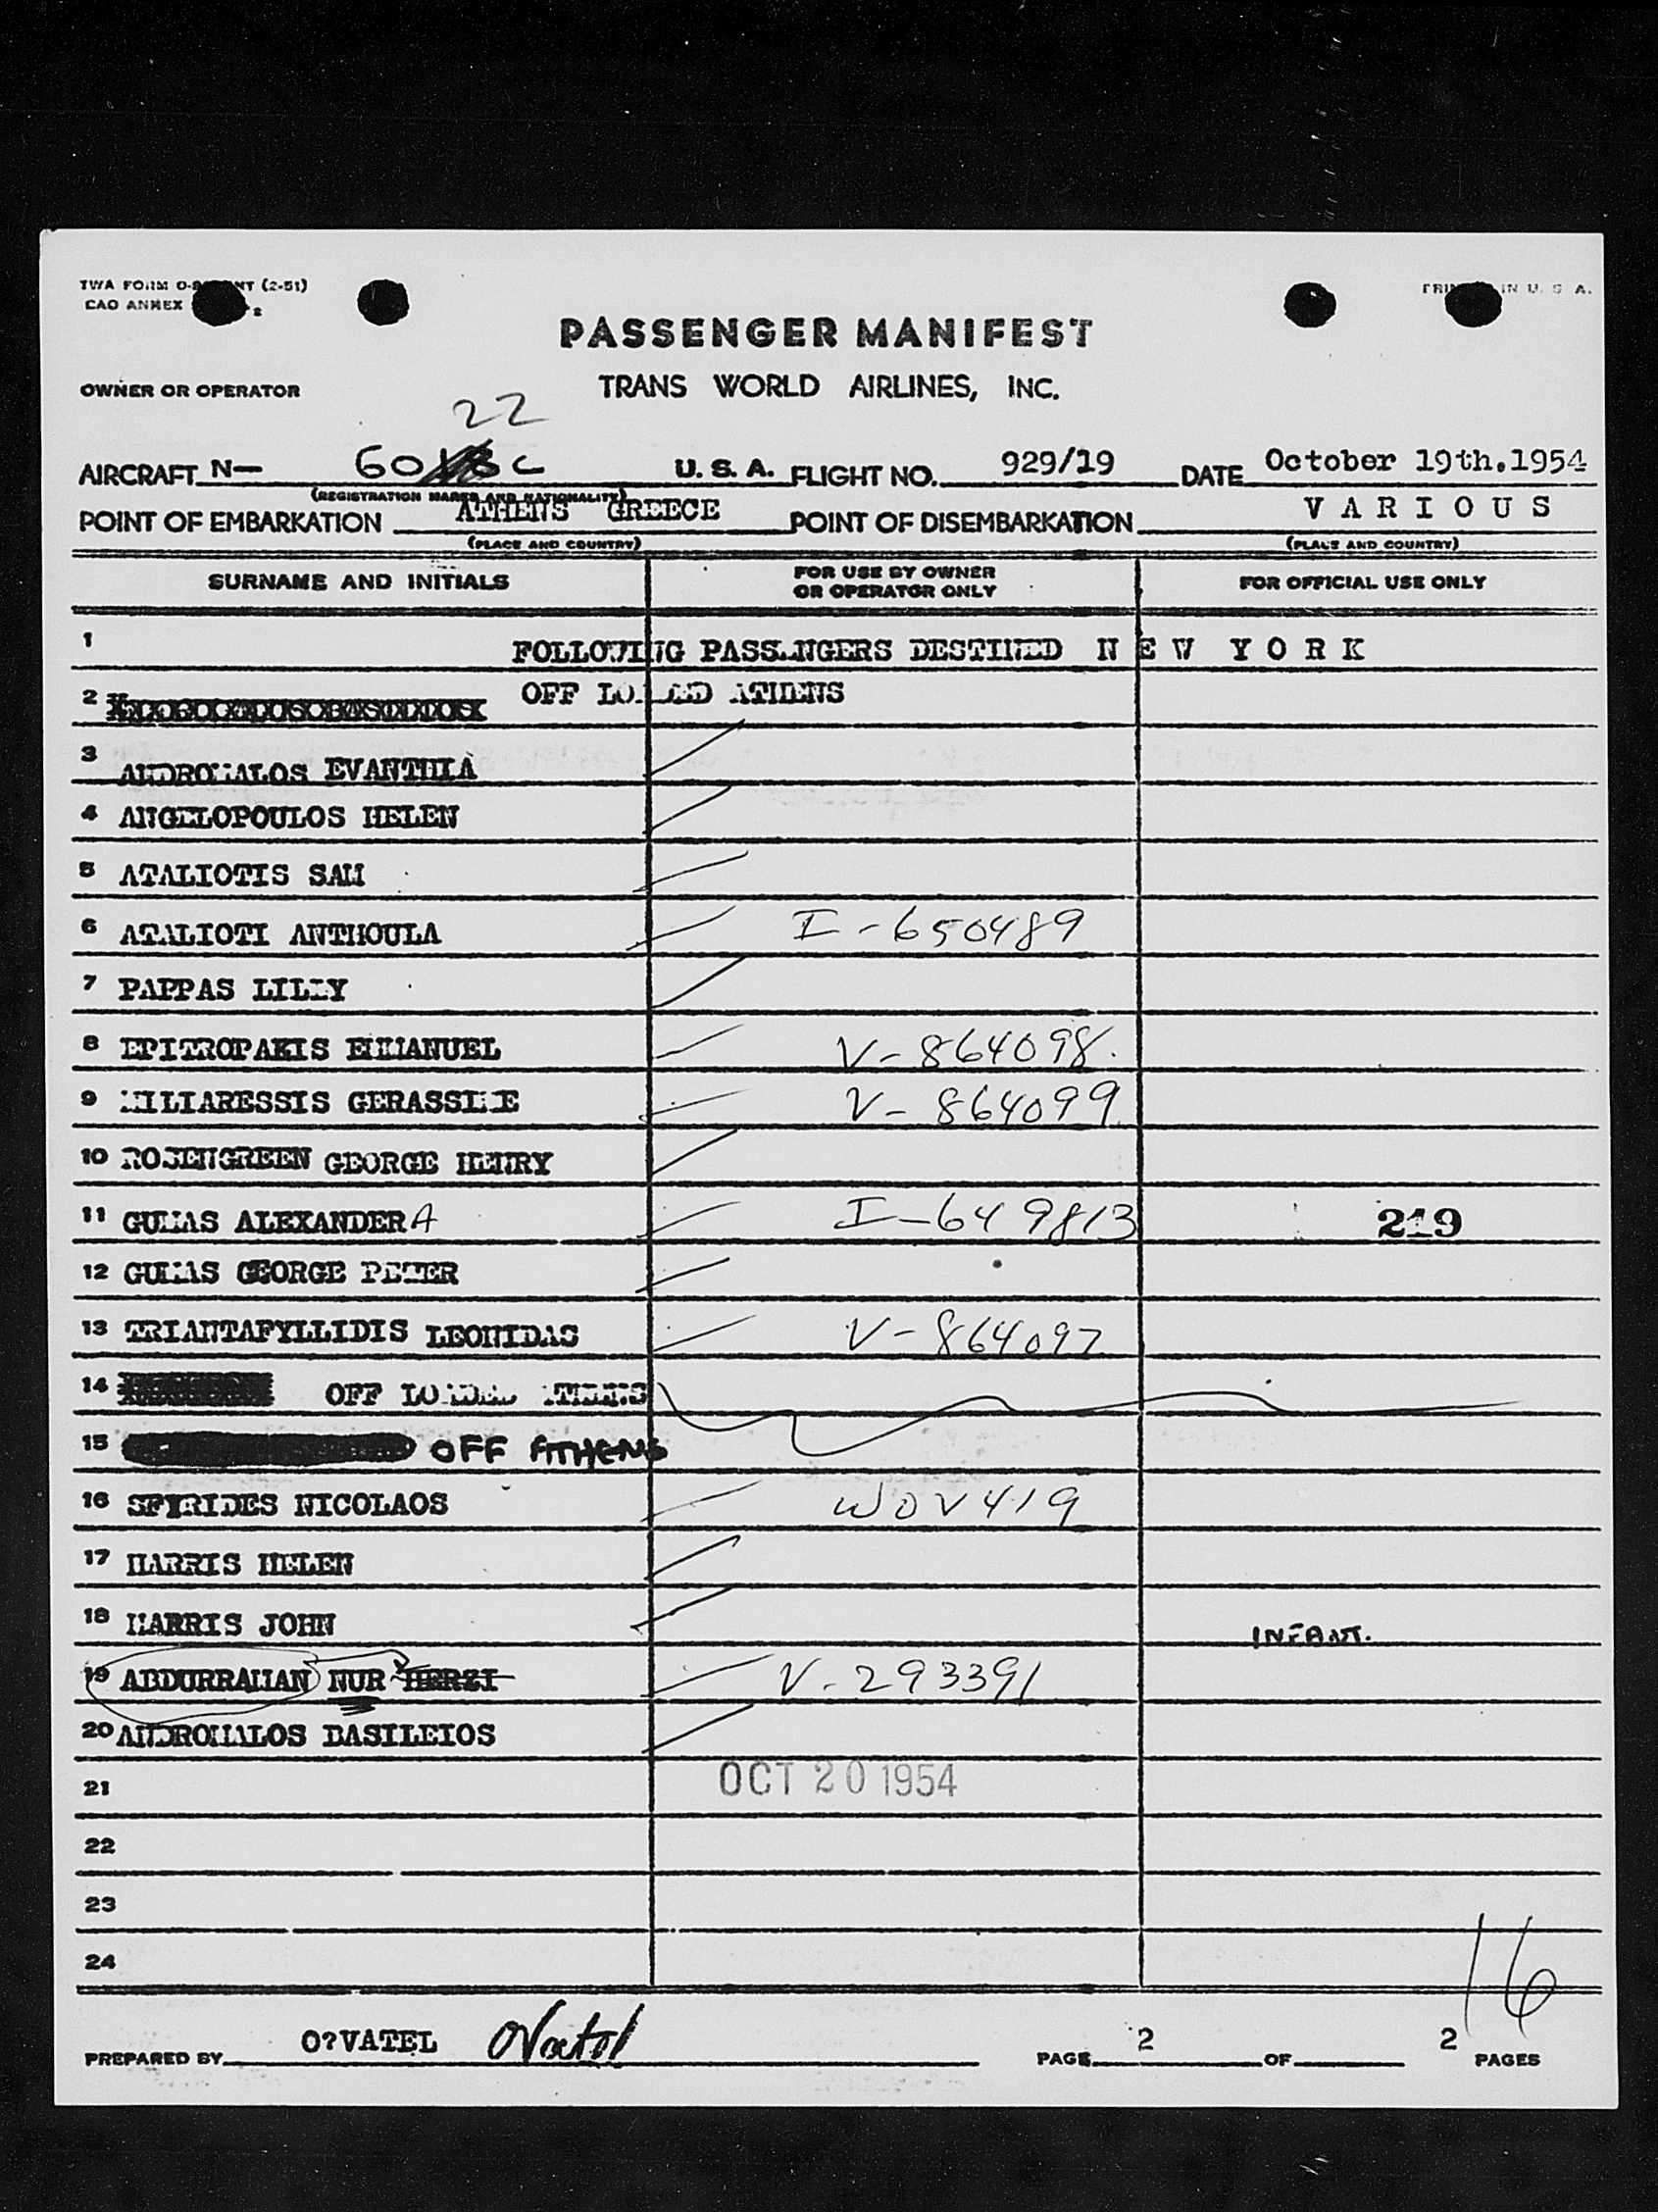 TWA FORM O- NT (2-51)
CAO ANNEX 2
IN U. S A.
PASSENGER MANIFEST
OWNER OR OPERATOR
TRANS WORLD AIRLINES, INC.
22
AIRCRAFT N— 60 C U. S. A. FLIGHT NO. 929/19 DATE October 19th.1954
(REGISTRATION MARKS AND NATIONALITY)
POINT OF EMBARKATION ATHENS GREECE POINT OF DISEMBARKATION VARIOUS
(PLACE AND COUNTRY) (PLACE AND COUNTRY)
SURNAME AND INITIALS FOR USE BY OWNER OR OPERATOR ONLY FOR OFFICIAL USE ONLY
1 FOLLOWING PASSENGERS DESTINED NEW YORK
2 OFF LOADED ATHENS
3 ANDROMALOS EVANTHIA
4 ANGELOPOULOS HELEN
5 ATALIOTIS SAM
6 ATALIOTI ANTHOULA I-650489
7 PAPPAS LILLY
8 EPITROPAKIS EMMANUEL V-864098.
9 MILIARESSIS GERASSIME V-864099
10 ROSENGREEN GEORGE HENRY
11 GUMAS ALEXANDER A I-649813 219
12 GUMAS GEORGE PETER
13 TRIANTAFYLLIDIS LEONIDAS V-864097
14 OFF LOADED ATHENS
15 OFF ATHENS
16 SPYRIDES NICOLAOS WOV419
17 HARRIS HELEN
18 HARRIS JOHN INFANT.
19 ABDURRAHAN NUR HERZI V-293391
20 ANDROMALOS BASILEIOS
21 OCT 20 1954
22
23
24
16
PREPARED BY O?VATEL OVatel PAGE 2 OF 2 PAGES